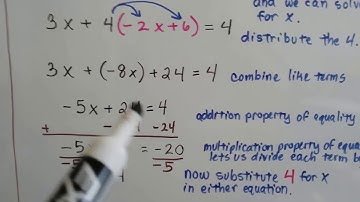 and we can solv
for x.
3x + 4(-2x+6) = 4
distribute the 4.
3x + (-8x) + 24 = 4 combine like terms
-5x + 2 = 4 addition property of equality
+ - -24
-5 = -20 multiplication property of equa
-5 -5 lets us divide each term b
4 now substitute 4 for x
in either equation.